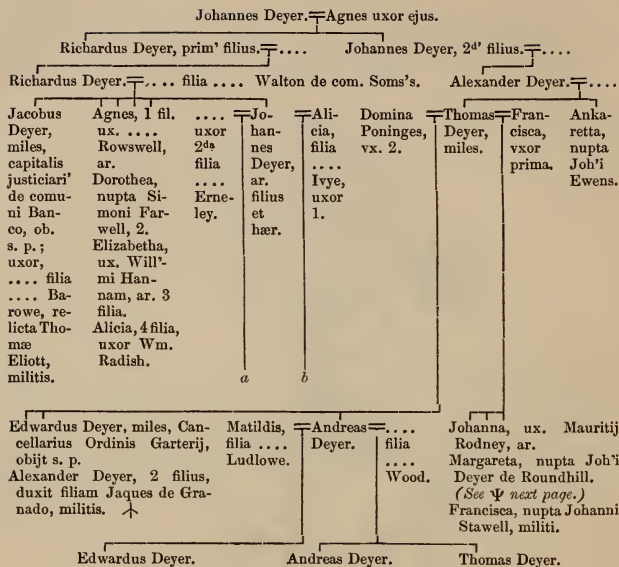 Johannes Deyer. Agnes uxor ejus.
Richardus Deyer, prim' filius. ....
Johannes Deyer, 2d' filius. ....
Richardus Deyer. .... filia .... Walton de com. Soms's.
Alexander Deyer. ....
Jacobus
Deyer,
miles,
capitalis
justiciari'
de comu-
ni Ban-
co, ob.
s. p.;
uxor,
.... filia
.... Ba-
rowe, re-
licta Tho-
mæ
Eliott,
militis.
Agnes, 1 fil.
ux. ....
Rowswell,
ar.
Dorothea,
nupta Si-
moni Far-
well, 2.
Elizabetha,
ux. Will'-
mi Han-
nam, ar. 3
filia.
Alicia, 4 filia,
uxor Wm.
Radish.
....
uxor
2da
filia
....
Erne-
ley.
Jo-
han-
nes
Deyer,
ar.
filius
et
hær.
Ali-
cia,
filia
....
Ivye,
uxor
1.
Domina
Poninges,
vx. 2.
Thomas
Deyer,
miles.
Fran-
cisca,
vxor
prima.
Anka-
retta,
nupta
Joh'i
Ewens.
a
b
Edwardus Deyer, miles, Can-
cellarius Ordinis Garterij,
obijt s. p.
Alexander Deyer, 2 filius,
duxit filiam Jaques de Gra-
nado, militis.
Matildis,
filia ....
Ludlowe.
Andreas
Deyer.
....
filia
....
Wood.
Johanna, ux. Mauritij
Rodney, ar.
Margareta, nupta Joh'i
Deyer de Roundhill.
(See Ψ next page.)
Francisca, nupta Johanni
Stawell, militi.
Edwardus Deyer.
Andreas Deyer.
Thomas Deyer.